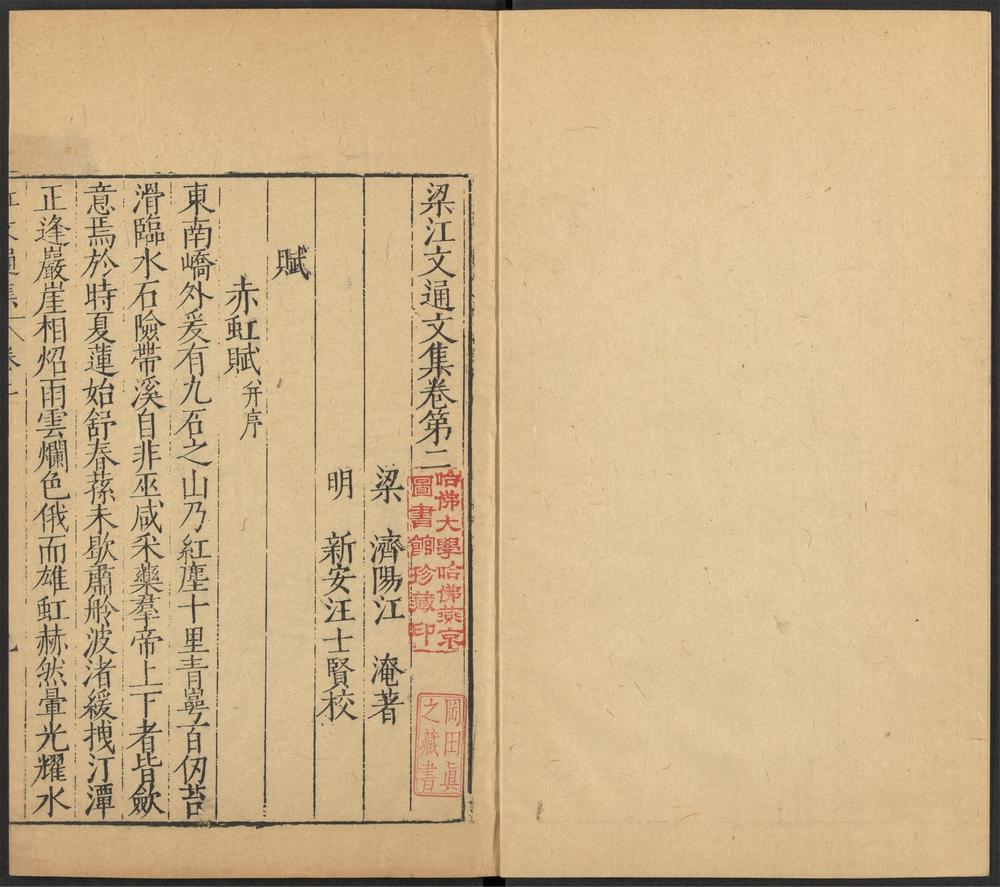 梁江文通文集卷第二
哈佛大學哈佛燕京
圖書館珍藏印
岡田眞
之藏書
梁 濟陽江 淹著
明 新安汪士賢校
賦
赤虹賦 并序
東南嶠外爰有九石之山乃紅壁十里青崿百仞苔
滑臨水石險帶溪自非巫咸采藥羣帝上下者皆歛
意焉於時夏蓮始舒春蓀未歇肅舲波渚緩拽汀潭
正逢巖崖相炤雨雲爛色俄而雄虹赫然暈光耀水